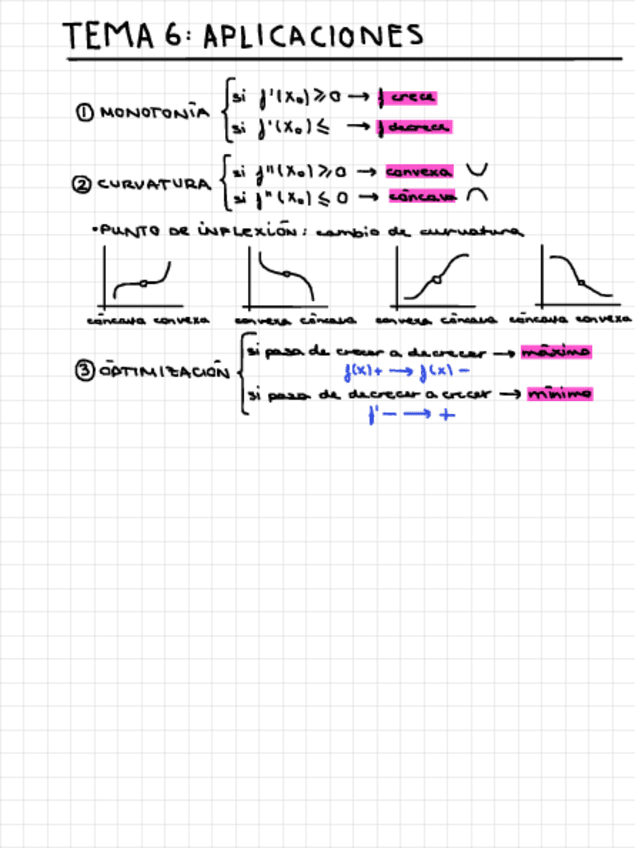 TEMA 6: APLICACIONES
① MONOTONÍA
si f'(x₀) ≥ 0 → f crece
si f'(x₀) ≤ → f decrece
② CURVATURA
si f''(x₀) ≥ 0 → convexa ∪
si f''(x₀) ≤ 0 → cóncava ∩
•PUNTO DE INFLEXIÓN: cambio de curvatura
cóncava convexa convexa cóncava convexa cóncava cóncava convexa
③ OPTIMIZACIÓN
si pasa de crecer a decrecer → máximo
f(x)+ → f(x) −
si pasa de decrecer a crecer → mínimo
f' − → +